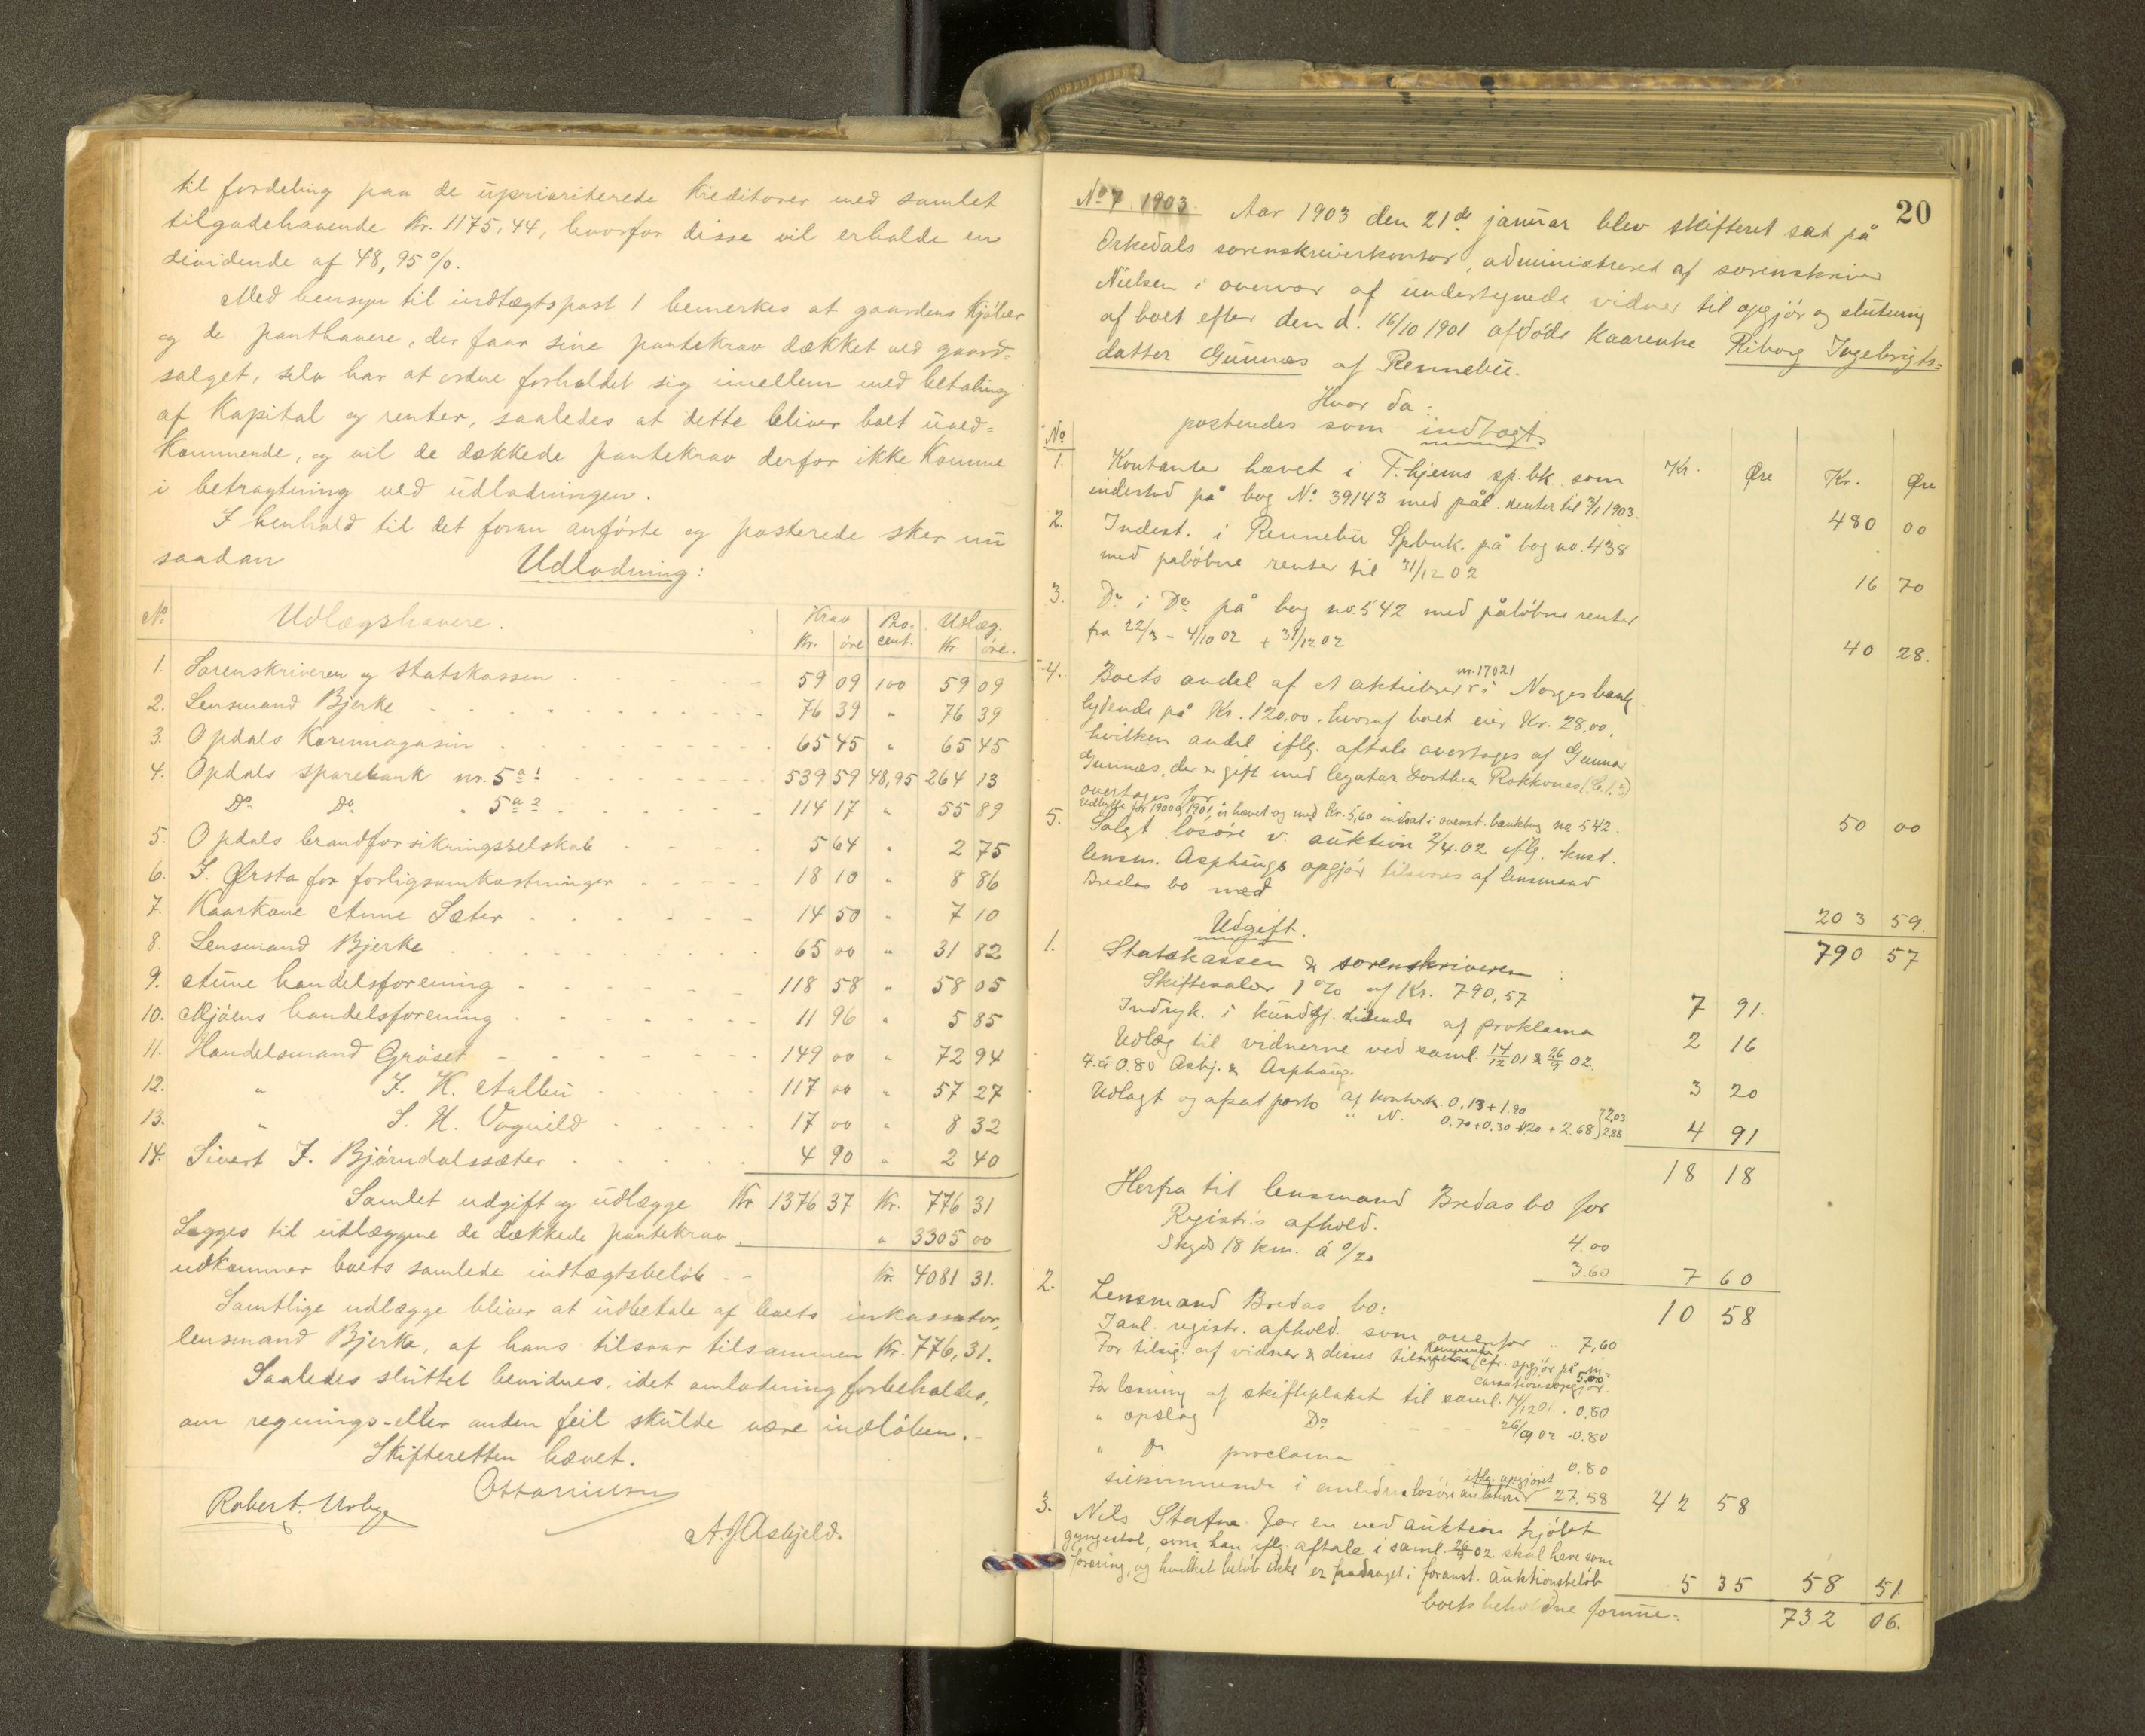 til fordeling paa de uprioriterede kreditorer med samlet
tilgodehavende Kr. 1175,44, hvorfor disse vil erholde en
dividende af 48,95 %.
Med hensyn til indtægtspost 1 bemerkes at gaardens kjøber
og de panthavere, der faar sine pantekrav dækket ved gaard=
salget, selv har at ordne forholdet sig imellem med betaling
af kapital og renter, saaledes at dette bliver boet uved=
kommende, og vil de dækkede pantekrav derfor ikke komme
i betragtning ved udlodningen.
I henhold til det foran anførte og posterede sker nu
saadan Udlodning:
No Udlægshavere. Krav Pro- Udlæg.
Kr. øre cent. Kr. øre.
1. Sorenskriveren og Statskassen 59 09 100 59 09
2. Lensmand Bjerke 76 39 " 76 39
3. Opdals Kornmagasin 65 45 " 65 45
4. Opdals sparebank nr. 5 a 1 539 59 48,95 264 13
Do Do " 5 a 2 114 17 " 55 89
5. Opdals brandforsikringsselskab 5 64 " 2 75
6. J. Ørsta for forligsomkostninger 18 10 " 8 86
7. Kaarkone Aune Sæter 14 50 " 7 10
8. Lensmand Bjerke 65 00 " 31 82
9. Aune handelsforening 118 58 " 58 05
10. Mjøens handelsforening 11 96 " 5 85
11. Handelsmand Grøset 149 00 " 72 94
12. " J. K. Aalbu 117 00 " 57 27
13. " S. H. Vognild 17 00 " 8 32
14. Sivert J. Bjørndalssæter 4 90 " 2 40
Samlet udgift og udlægge Kr. 1376 37 Kr. 776 31
Lægges til udlæggene de dækkede pantekrav " 3305 00
udkommer boets samlede indtægtsbeløb Kr. 4081 31.
Samtlige udlægge bliver at udbetale af boets inkassator,
lensmand Bjerke, af hans tilsvar tilsammen Kr. 776,31.
Saaledes sluttet bevidnes, idet omlodning forbeholdes,
om regnings- eller anden feil skulde være indløben.-
Skifteretten hævet.
Robert
A. J. Asbjeld.
20
No 7 1903. Aar 1903 den 21de januar blev skifteret sat på
Orkedals sorenskriverkontor, administreret af sorenskriver
Nielsen i overvær af undertegnede vidner til opgjør og slutning
af boet efter den d. 16/10 1901 afdøde kaarenke Riborg Ingebrigts=
datter Gunnes af Rennebu.
Hvor da:
posteredes som indtægt.
No Kr. Øre Kr. Øre
1. Kontanter hævet i T.hjems sp.bk. som
indestod på bog No 39143 med pål. renter til 2/1 1903. 480 00
2. Indest. i Rennebu Sp.bnk. på bog no. 438
med påløbne renter til 31/12 02 16 70
3. Do i Do på bog no. 542 med påløbne renter
fra 22/3 - 4/10 02 + 31/12 02 40 28.
4. Boets andel af et aktiebrev nr. 17021 i Norges bank
lydende på Kr. 120,00, hvoraf boet eier Kr. 28,00,
hvilken andel iflg. aftale overtages af Gunnar
Gunnes, der er gift med legatar Dorthea Rokkones
overtages for 50 00
Udbytte for 1900 & 1901 er hævet og med kr. 5,60 indsat i ovenst. bankbog no 542.
5. Solgt løsøre v. auktion 2/4.02 iflg. konst.
lensm. Asphaugs opgjør tilsvares af lensmand
Bredas bo med 203 59.
790 57
Udgift.
1. Statskassen & sorenskriveren:
Skiftesalær 1 % af Kr. 790,57 7 91.
Indryk. i kundgj. tidende af proklama 2 16
Udlæg til vidnerne ved saml. 14/12 01 & 26/9 02.
4. à 0.80 Asbj. & Asphaug. 3 20
Udlagt og afsat porto af kontork. 0.13 + 1.90 } 2,03
" N. 0.70 + 0.30 + 20 + 2.68 } 2,88 4 91
18 18
Herfra til lensmand Bredas bo for
Registr.s afhold. 4.00
Skyds 18 km. á 0/20 3.60 7 60
10 58
2. Lensmand Bredas bo:
I anl. registr. afhold. som ovenfor " 7,60
For tilsig. af vidner & disses
For læsning af skifteplakat til saml. 14/12 01. 0,80
" opslag Do 26/9 02 0.80
" Do proclama 0,80
tilkommende i anledn. løsøreauktion iflg. opgjøret 27,58 42 58
3. Nils Stafne for en ved auktion kjøbt
gyngestol, som han iflg. aftale i saml. 26/9 02. skal have som
foræring, og hvilket beløb ikke er fradraget i foranst. auktionsbeløb 5 35 58 51.
boets beholdne formue: 732 06.